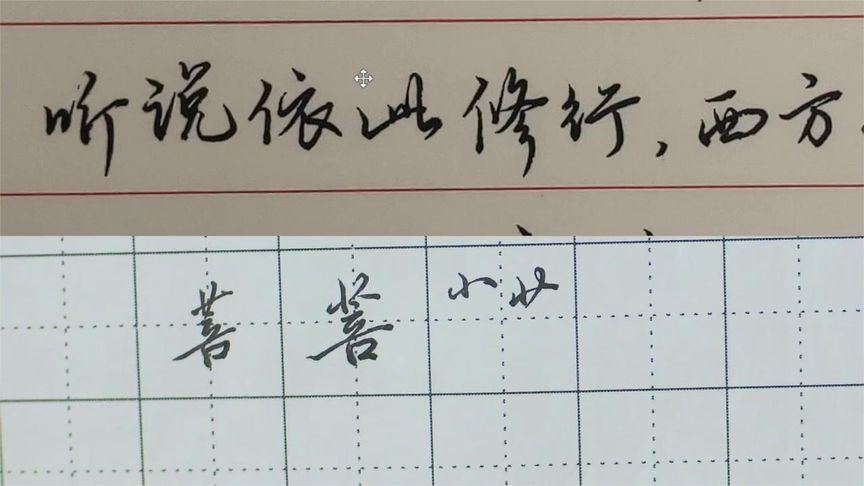 听说依此修行，西方
菩 菩